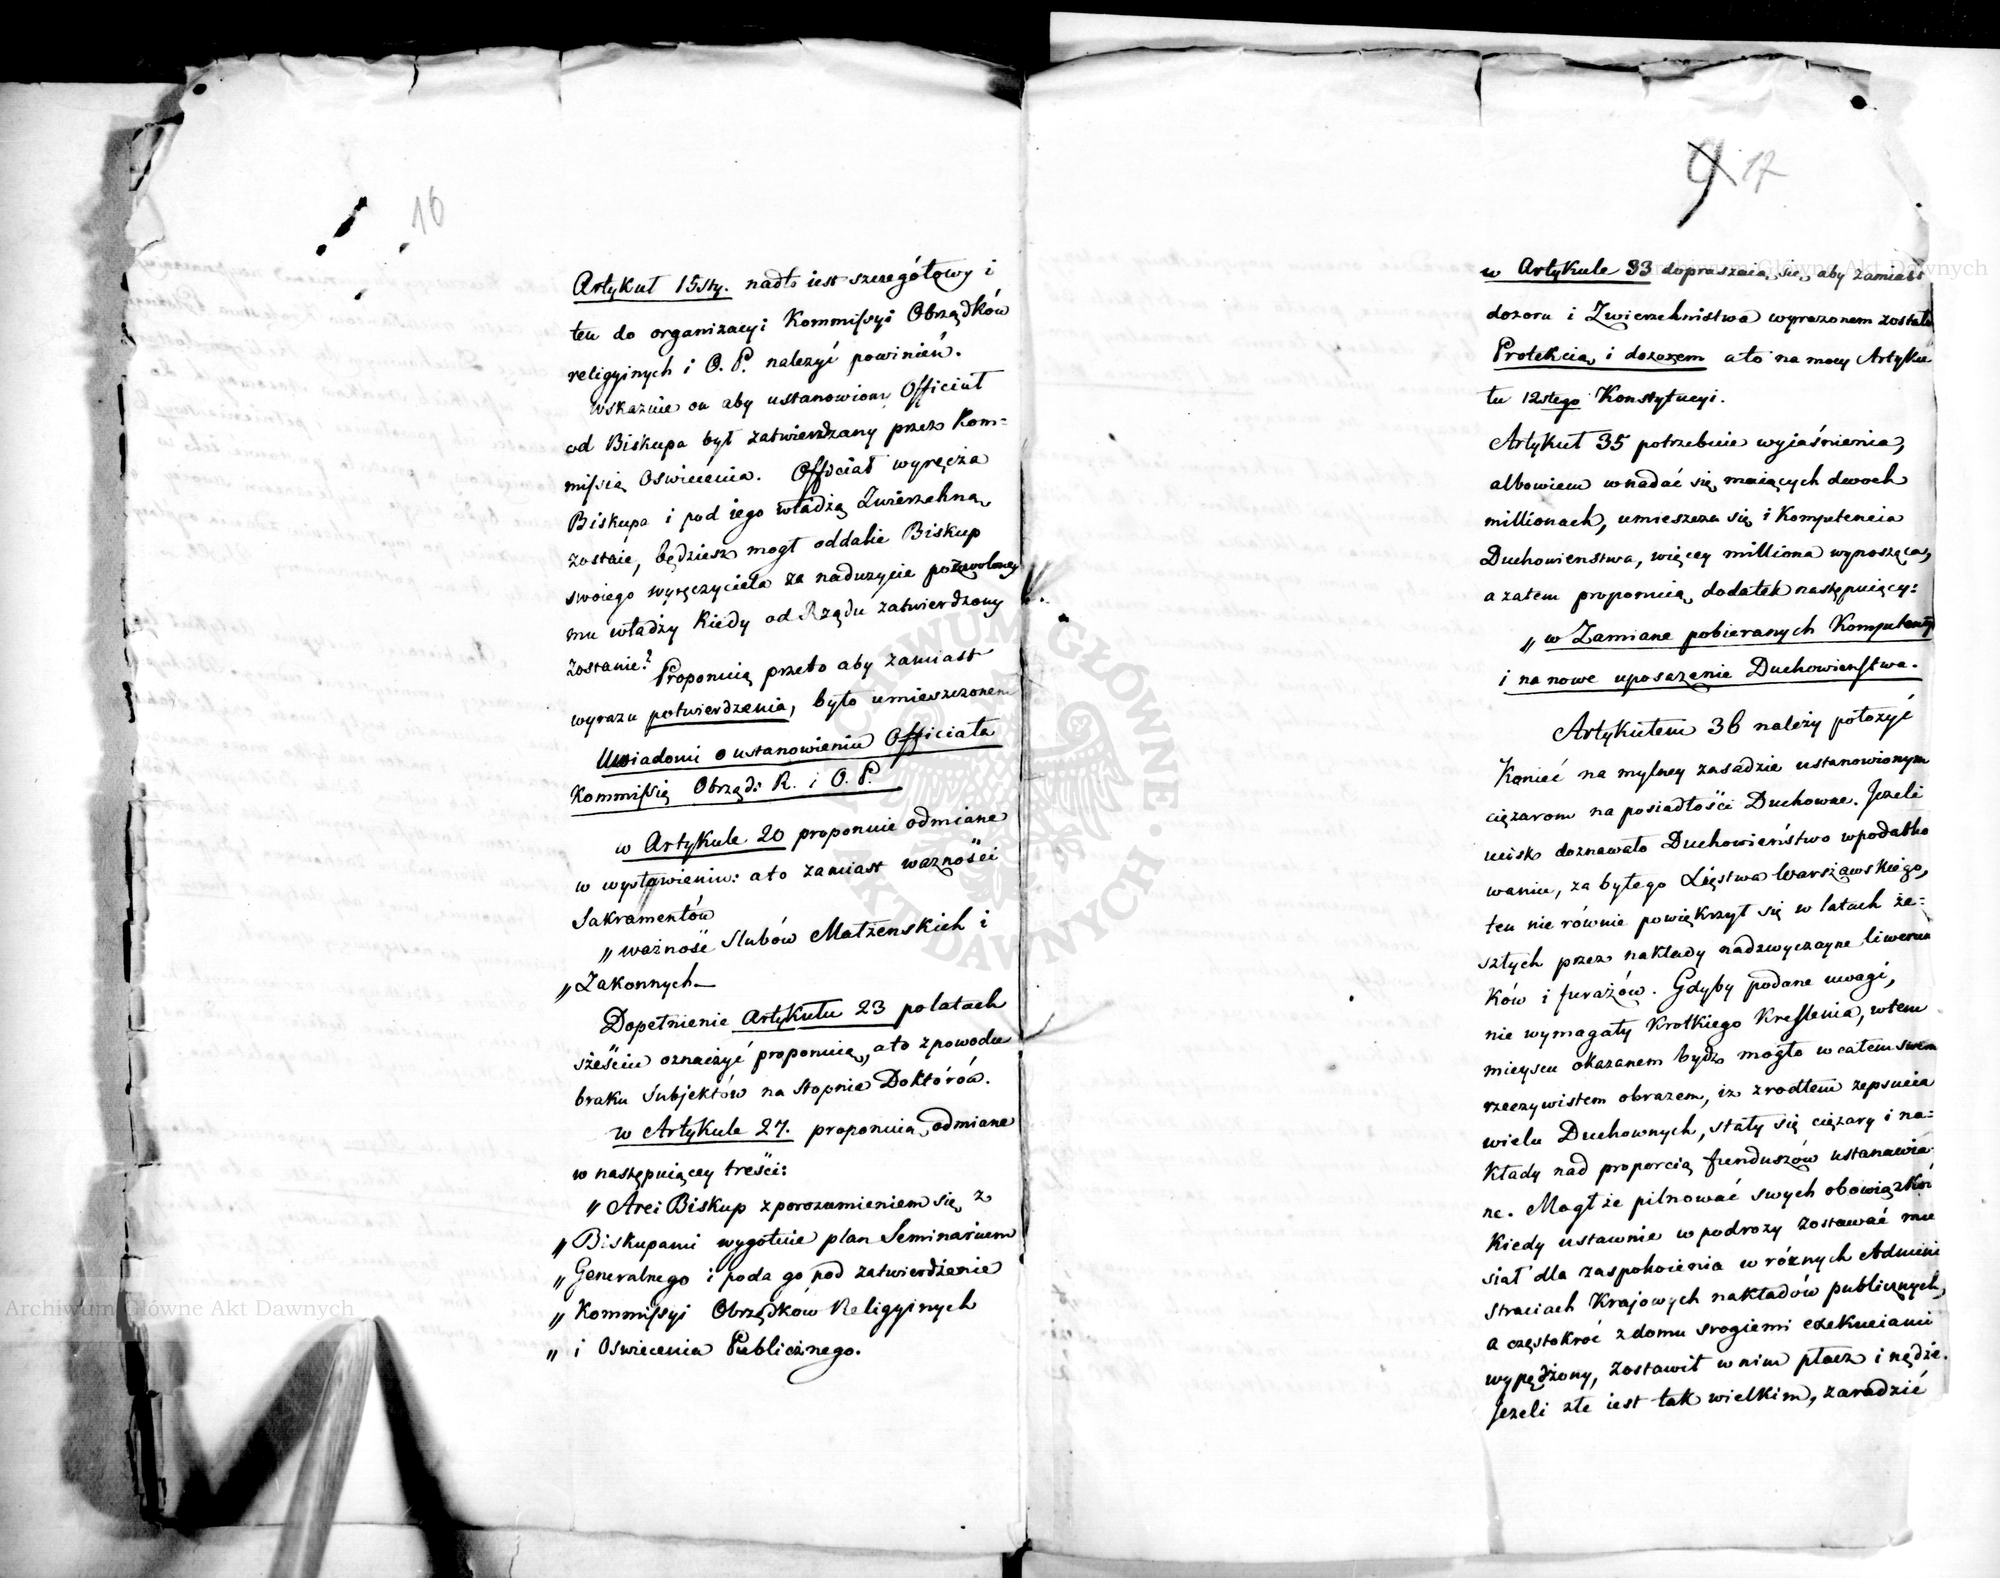 16
Artykuł 15sty. nadto iest szczegółowy i
ten do organizacyi Kommissyi Obrządków
religyinych i O. P. należyć powinień.
Wskazuie on aby ustanowiony Officiał
od Biskupa był zatwierdzany przez Kom=
missią Oswiecenia. Officiał wyręcza
Biskupa i pod iego władzą Zwierzchną
zostaie, będziesz mogł oddalić Biskup
swoiego wyręczyciela za nadużycie pozwoloney
mu władzy kiedy od Rządu zatwierdzony
zostanie? Proponuią przeto aby zamiast
wyrazu potwierdzenia, było umieszczonem
Uwiadomi o ustanowieniu Officiała
Kommissią Obrząd: R. i O. P.
w Artykule 20 proponuie odmiane
w wystawieniu: a to zamiast ważności
Sakramentów
„ ważność Slubów Małżenskich i
„ Zakonnych—
Dopełnienie Artykułu 23 po latach
sześciu oznaczyć proponuią, a to z powodu
braku Subjektów na stopnie Doktórów.
w Artykule 27. proponuią odmiane
w następuiącey treści:
„ Arci Biskup z porozumieniem się z
„ Biskupami wygotuie plan Seminarium
„ Generalnego i poda go pod zatwierdżenie
„ Kommissyi Obrządków Religyinych
„ i Oswiecenia Publicznego.
9 17
w Artykule 33 dopraszaią się, aby zamiast
dozoru i Zwierzchnistwa wyrazonem zostało
Protekcią i dozorem a to na mocy Artyku
łu 12stego Konstytucyi.
Artykuł 35 potrzebuie wyiaśnienia,
albowiem w nadać się maiących dwoch
millionach, umieszcza się i Kompetencia
Duchowienstwa, więcey milliona wynosząca,
a zatem proponuią dodatek następuiący:
„ w Zamiane pobieranych Kompetency
i na nowe uposażenie Duchowienstwa.
Artykułem 36 należy położyć
Konieć na mylney zasadzie ustanowionym
ciężarom na posiadłości Duchowne. Jezeli
ucisk doznawało Duchowieństwo w podatko
waniu, za byłego Xięstwa Warszawskiego,
ten nie równie powiękrzył się w latach ze=
szłych przez nakłady nadzwyczayne liwerun
ków i furażów. Gdyby podane uwagi,
nie wymagały Krotkiego Kreslenia, w tem
mieyscu okazanem bydz mogło w całem swem
rzeczywistem obrazem, iz zrodłem zepsucia
wielu Duchownych, stały się ciężary i na=
kłady nad proporcią funduszów ustanawia
ne. Mogł ze pilnować swych obowiązków
Kiedy ustawnie w podrozy zostawać mu
siał dla zaspokoienia w różnych Admini
straciach Krajowych nakładów publicznych,
a częstokroć z domu srogiemi exekuciami
wypędzony, zostawił w nim płacz i nędze.
Jezeli złe iest tak wielkim, zaradzić
Archiwum Główne Akt Dawnych
Archiwum Główne Akt Dawnych
ARCHIWUM GŁÓWNE · AKT DAWNYCH ·